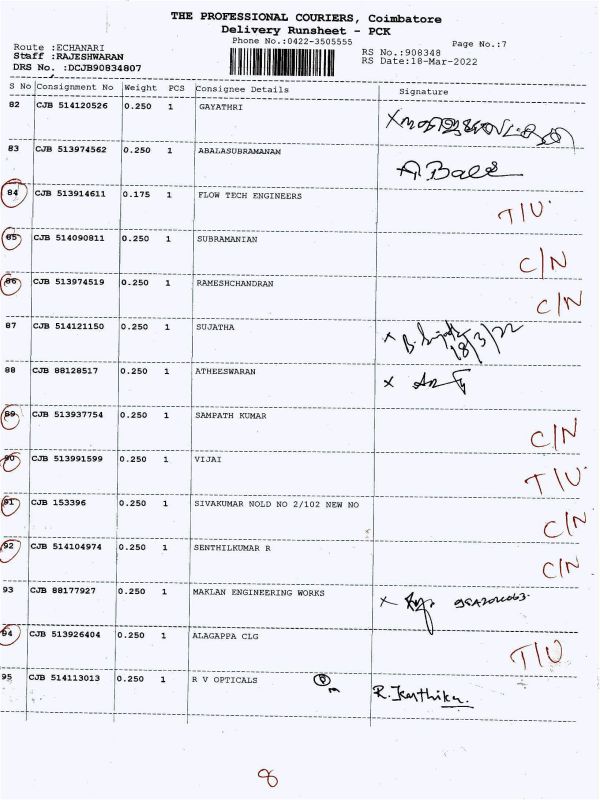 THE PROFESSIONAL COURIERS, Coimbatore
Delivery Runsheet - PCK
Phone No.:0422-3505555
Page No.:7
Route :ECHANARI
Staff :RAJESHWARAN
DRS No. :DCJB90834807
RS No.:908348
RS Date:18-Mar-2022
S No Consignment No Weight PCS Consignee Details Signature
82 CJB 514120526 0.250 1 GAYATHRI
83 CJB 513974562 0.250 1 ABALASUBRAMANAM A Bala
84 CJB 513914611 0.175 1 FLOW TECH ENGINEERS T/U
85 CJB 514090811 0.250 1 SUBRAMANIAN C/N
86 CJB 513974519 0.250 1 RAMESHCHANDRAN C/N
87 CJB 514121150 0.250 1 SUJATHA x B. Sujatha
18/3/22
88 CJB 88128517 0.250 1 ATHEESWARAN x
89 CJB 513937754 0.250 1 SAMPATH KUMAR C/N
90 CJB 513991599 0.250 1 VIJAI T/U
91 CJB 153396 0.250 1 SIVAKUMAR NOLD NO 2/102 NEW NO C/N
92 CJB 514104974 0.250 1 SENTHILKUMAR R C/N
93 CJB 88177927 0.250 1 MAKLAN ENGINEERING WORKS x
94 CJB 513926404 0.250 1 ALAGAPPA CLG T/U
95 CJB 514113013 0.250 1 R V OPTICALS R. Karthika
8